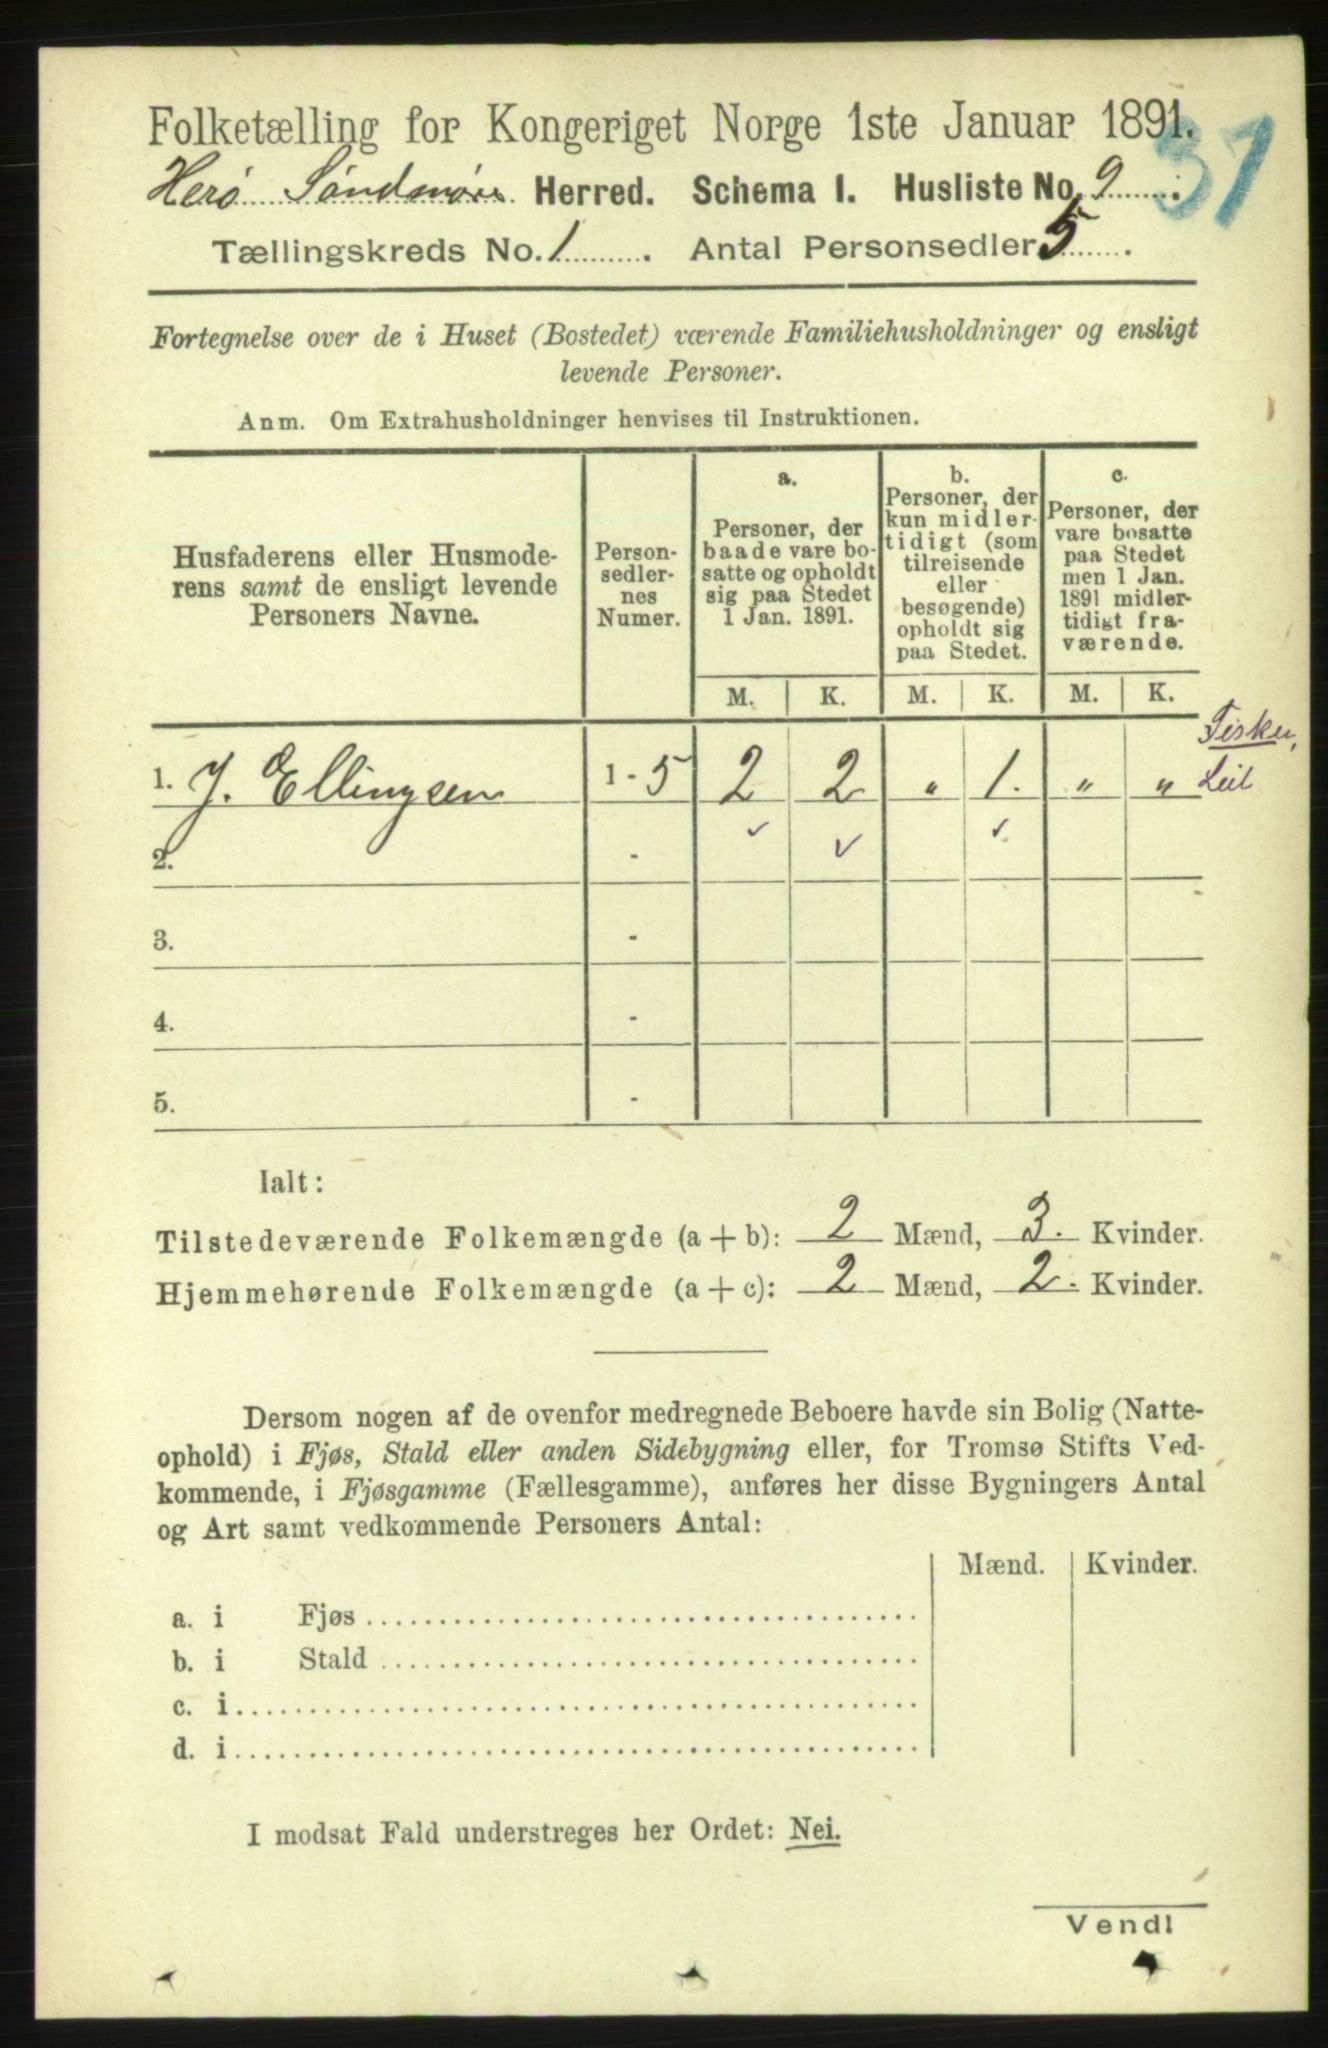 Folketælling for Kongeriget Norge 1ste Januar 1891.
37
Herø Søndmøre Herred. Schema I. Husliste No. 9
Tællingskreds No. 1. Antal Personsedler 5.
Fortegnelse over de i Huset (Bostedet) værende Familiehusholdninger og ensligt
levende Personer.
Anm. Om Extrahusholdninger henvises til Instruktionen.
Husfaderens eller Husmode-
rens samt de ensligt levende
Personers Navne.
Person-
sedler-
nes
Numer.
a.
Personer, der
baade vare bo-
satte og opholdt
sig paa Stedet
1 Jan. 1891.
b.
Personer, der
kun midler-
tidigt (som
tilreisende
eller
besøgende)
opholdt sig
paa Stedet.
c.
Personer, der
vare bosatte
paa Stedet
men 1 Jan.
1891 midler-
tidigt fra-
værende.
M. K. M. K. M. K.
Fisker,
1. J. Ellingsen 1 - 5 2 2 " 1. " " Leil
✓ ✓ ✓
2. -
3. -
4. -
5. -
Ialt:
Tilstedeværende Folkemængde (a + b): 2 Mænd, 3. Kvinder.
Hjemmehørende Folkemængde (a + c): 2 Mænd, 2. Kvinder.
Dersom nogen af de ovenfor medregnede Beboere havde sin Bolig (Natte-
ophold) i Fjøs, Stald eller anden Sidebygning eller, for Tromsø Stifts Ved-
kommende, i Fjøsgamme (Fællesgamme), anføres her disse Bygningers Antal
og Art samt vedkommende Personers Antal:
Mænd. Kvinder.
a. i Fjøs
b. i Stald
c. i
d. i
I modsat Fald understreges her Ordet: Nei.
Vend!